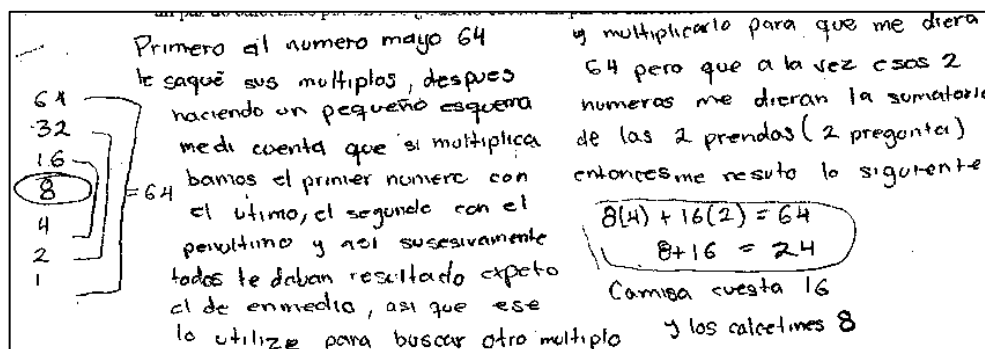 64
32
16
8
4
2
1
=64
Primero al numero mayo 64
le saqué sus multiplos, despues
haciendo un pequeño esquema
me di cuenta que si multiplica
bamos el primer numero con
el utimo, el segundo con el
penultimo y asi susesivamente
todos te daban resultado expeto
el de enmedio, asi que ese
lo utilize para buscar otro multiplo
y multiplicarlo para que me diera
64 pero que a la vez esos 2
numeros me dieran la sumatoria
de las 2 prendas (2 pregonta)
entonces me resuto lo siguiente
8(4) + 16(2) = 64
8+16 = 24
Camisa cuesta 16
y los calcetines 8